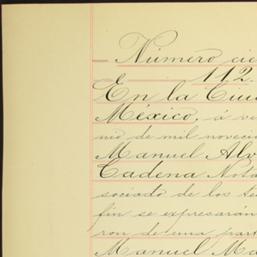 Número cie
112.
En la Ciud
México, á ve
nio de mil noveci
Manuel Alv
Cadena Nota
sociado de los te
fin se expresarán
ron de una part
Manuel Ma